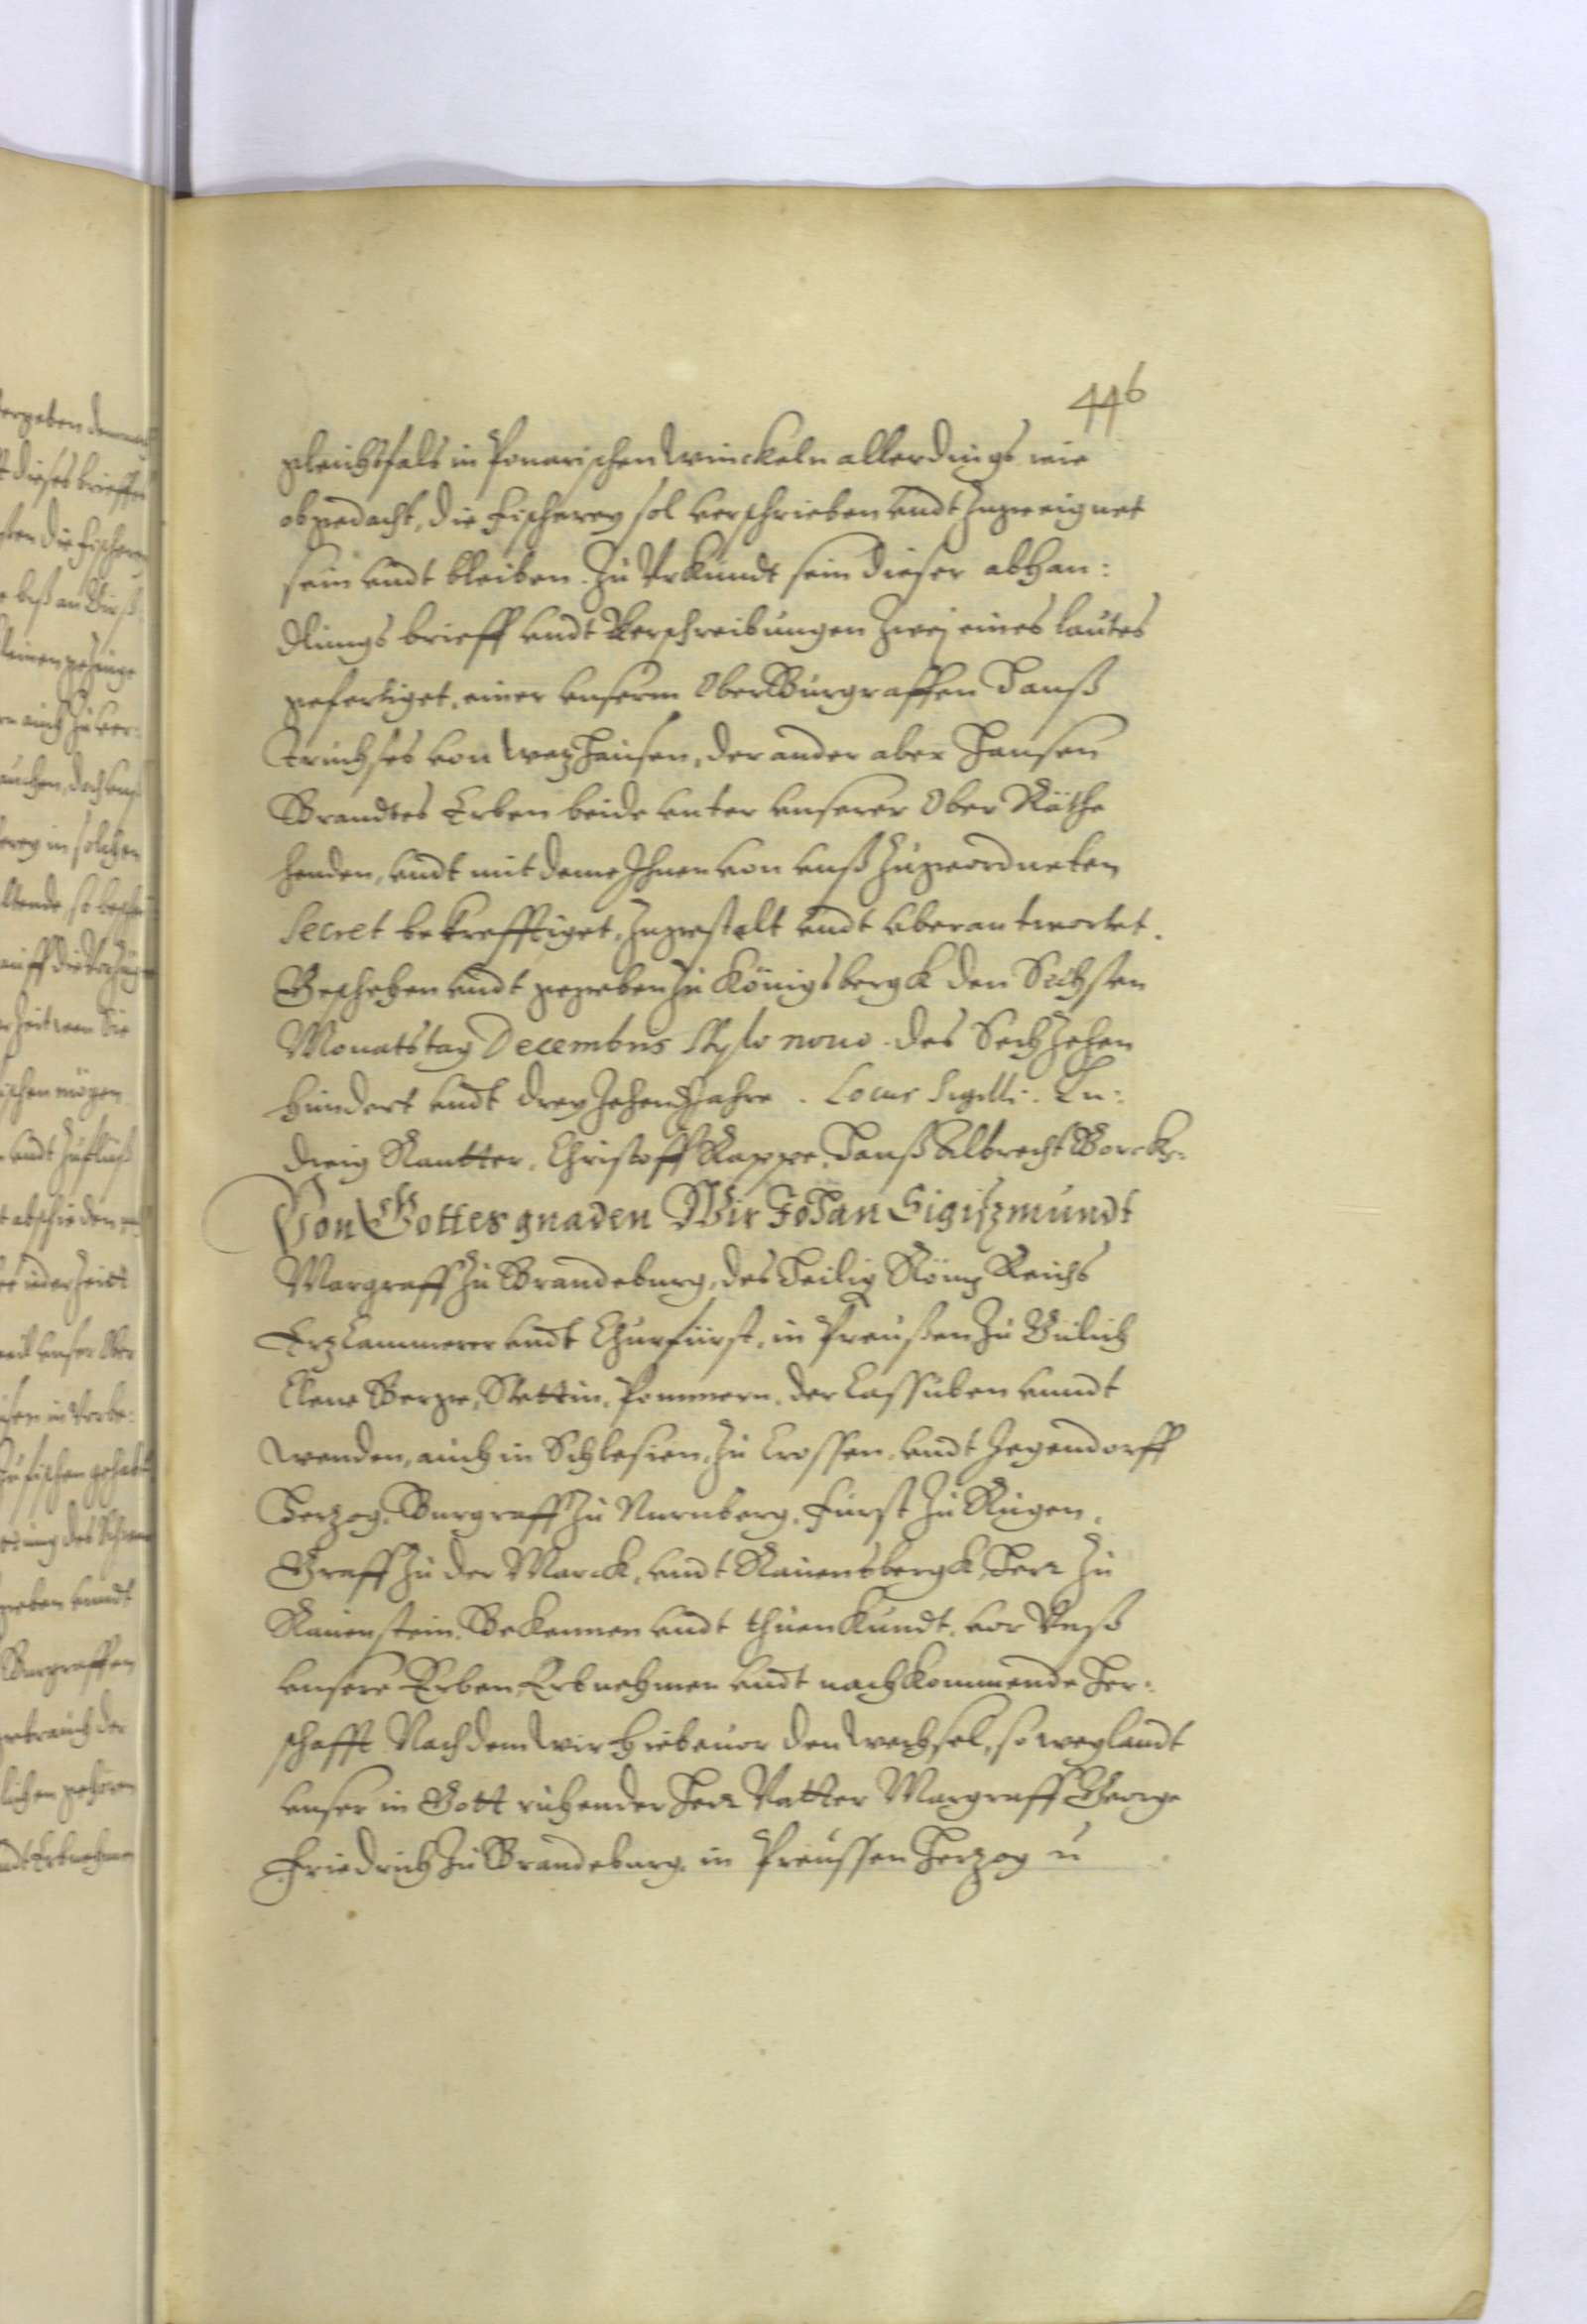 446
gleichsfals in Ponarischen Winckeln allerdings wie
obgedacht, die Fischerey sol verschrieben undt zugeeignet
sein undt bleiben. Zu Urkundt sein dieser abhan:
dlungs brieff undt Verschreibungen zwej eines lautes
gefertiget, einer unserm OberBurgraffen Hanß
Truchses von Wezhausen, der ander aber Hansen
Brandtes Erben beide unter unserer Ober Räthe
henden, undt mit deme Ihnen von unß zugeordneten
Secret bekrefftiget, zugestelt undt uberantwortet.
Geschehen undt gegeben zu Königsbergk den Sechsten
Monatstag Decembris Stylo nouo. des Sechzehen
hundert undt dreyzehend Jahre. Locus Sigilli. Lu:
dwig Rautter, Christoff Rappe, Hanß Albrecht Borck.
Von Gottes gnaden Wir Johan Sigißmundt
Margraff zu Brandeburg, des Heilig Römg Reichs
Erzcammerer undt Churfürst, in Preußen zu Gülich
Cleue Berge, Stettin, Pommern, der Cassuben unndt
Wenden, auch in Schlesien, zu Crossen, undt Jegendorff
Herzog, Burgraff zu Nurnberg, Fürst zu Rügen,
Graff zu der Marck, undt Rauensbergk, Herr zu
Rauenstein. Bekennen undt thuen kundt, vor Unß
unsere Erben, Erbnehmen undt nachkommende Her:
schafft Nachdem wir hiebeuor den Wechsel, so weylandt
unser in Gott ruhender Herr Vatter Margraff George
Friedrich zu Brandeburg, in Preussen Herzog
ergeben
dieses brieffes
die Fischerey
auch zu ver:
in solchen
Zeit wen Sie
undt Zufluß
abschieden
unser Ober
zu fischen gehabt
Burgraffen
gebrauch der
gehören
Erbnehmen